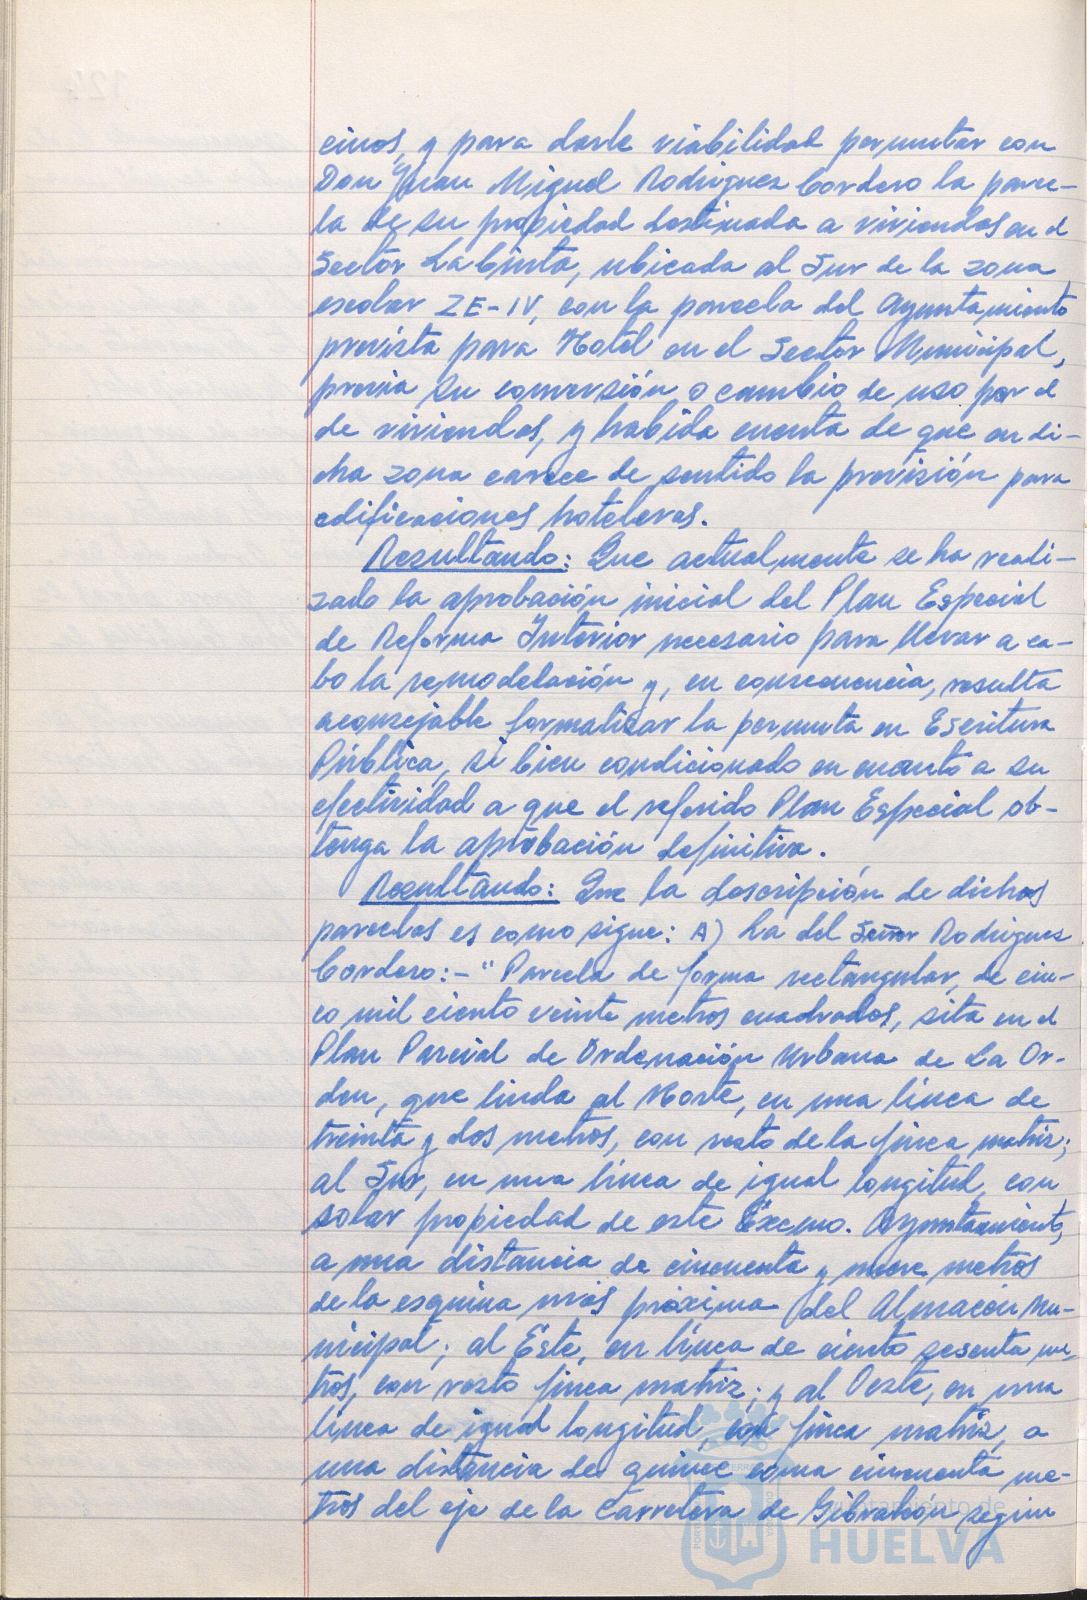 cinos, y para darle viabilidad permutar con
Don Juan Miguel Rodriguez Cordero la parce-
la de su propiedad destinada a viviendas en el
Sector La Cinta, ubicada al Sur de la zona
escolar ZE-IV, con la parcela del Ayuntamiento
prevista para Hotel en el Sector Municipal,
previa su conversión o cambio de uso por el
de viviendas, y habida cuenta de que en di-
cha zona carece de sentido la previsión para
edificaciones hoteleras.
Resultando: Que actualmente se ha reali-
zado la aprobación inicial del Plan Especial
de Reforma Interior necesario para llevar a ca-
bo la remodelación y, en consecuencia, resulta
aconsejable formalizar la permuta en Escritura
Pública, si bien condicionado en cuanto a su
efectividad a que el referido Plan Especial ob-
tenga la aprobación definitiva.
Resultando: Que la descripción de dichas
parcelas es como sigue: A) La del Señor Rodriguez
Cordero:- "Parcela de forma rectangular, de cin-
co mil ciento veinte metros cuadrados, sita en el
Plan Parcial de Ordenación Urbana de La Or-
den, que linda al Norte, en una línea de
treinta y dos metros, con resto de la finca matriz;
al Sur, en una línea de igual longitud, con
solar propiedad de este Excmo. Ayuntamiento,
a una distancia de cincuenta y nueve metros
de la esquina más próxima del Almacén Mu-
nicipal; al Este, en línea de ciento sesenta me-
tros, con resto finca matriz; y al Oeste, en una
línea de igual longitud, con finca matriz, a
una distancia de quince coma cincuenta me-
tros del eje de la Carretera de Gibraleón según
Ayuntamiento de
HUELVA